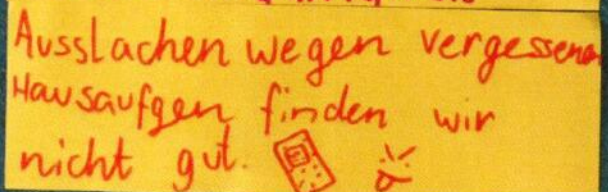 Ausslachen wegen vergessenen
Hausaufgen finden wir
nicht gut.